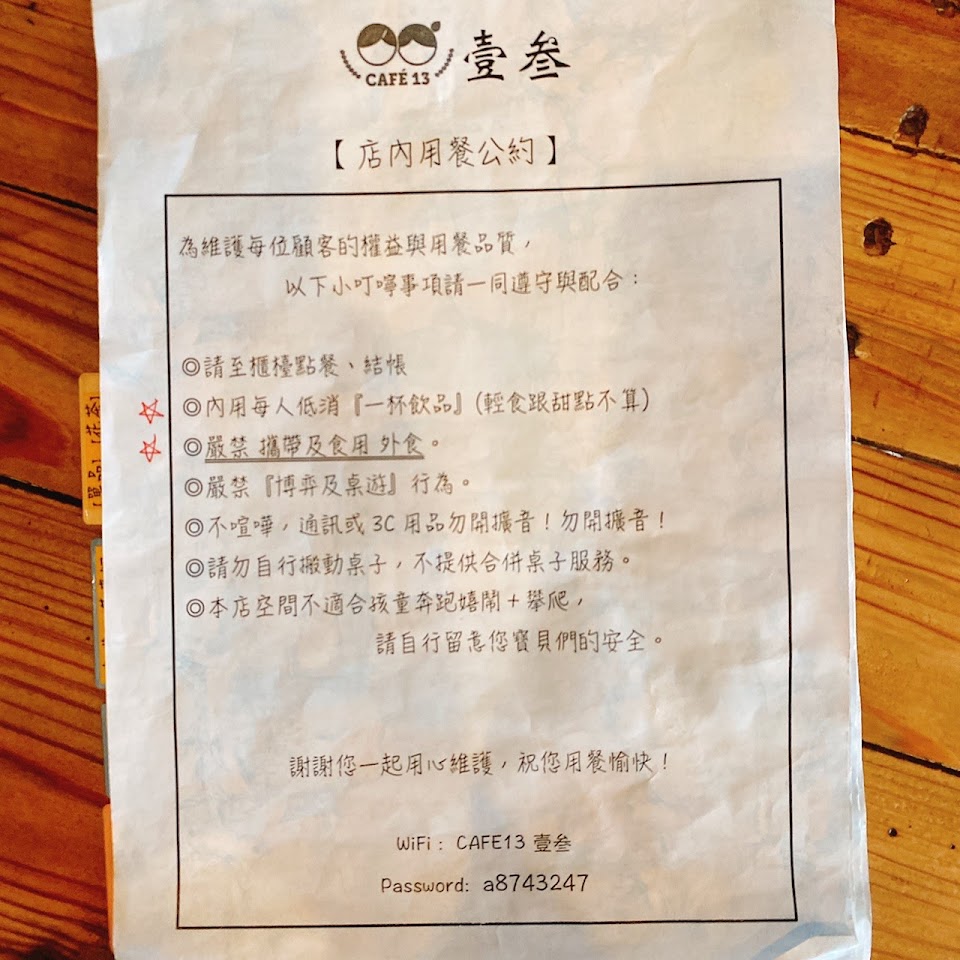 CAFÉ 13 壹叁
【店內用餐公約】
為維護每位顧客的權益與用餐品質，
以下小叮嚀事項請一同遵守與配合：
◎請至櫃檯點餐、結帳
☆◎內用每人低消『一杯飲品』(輕食跟甜點不算)
☆◎嚴禁 攜帶及食用 外食。
◎嚴禁『博弈及桌遊』行為。
◎不喧嘩，通訊或 3C 用品勿開擴音！勿開擴音！
◎請勿自行搬動桌子，不提供合併桌子服務。
◎本店空間不適合孩童奔跑嬉鬧＋攀爬，
請自行留意您寶貝們的安全。
謝謝您一起用心維護，祝您用餐愉快！
WiFi： CAFE13 壹叁
Password: a8743247
[單品] [花茶]